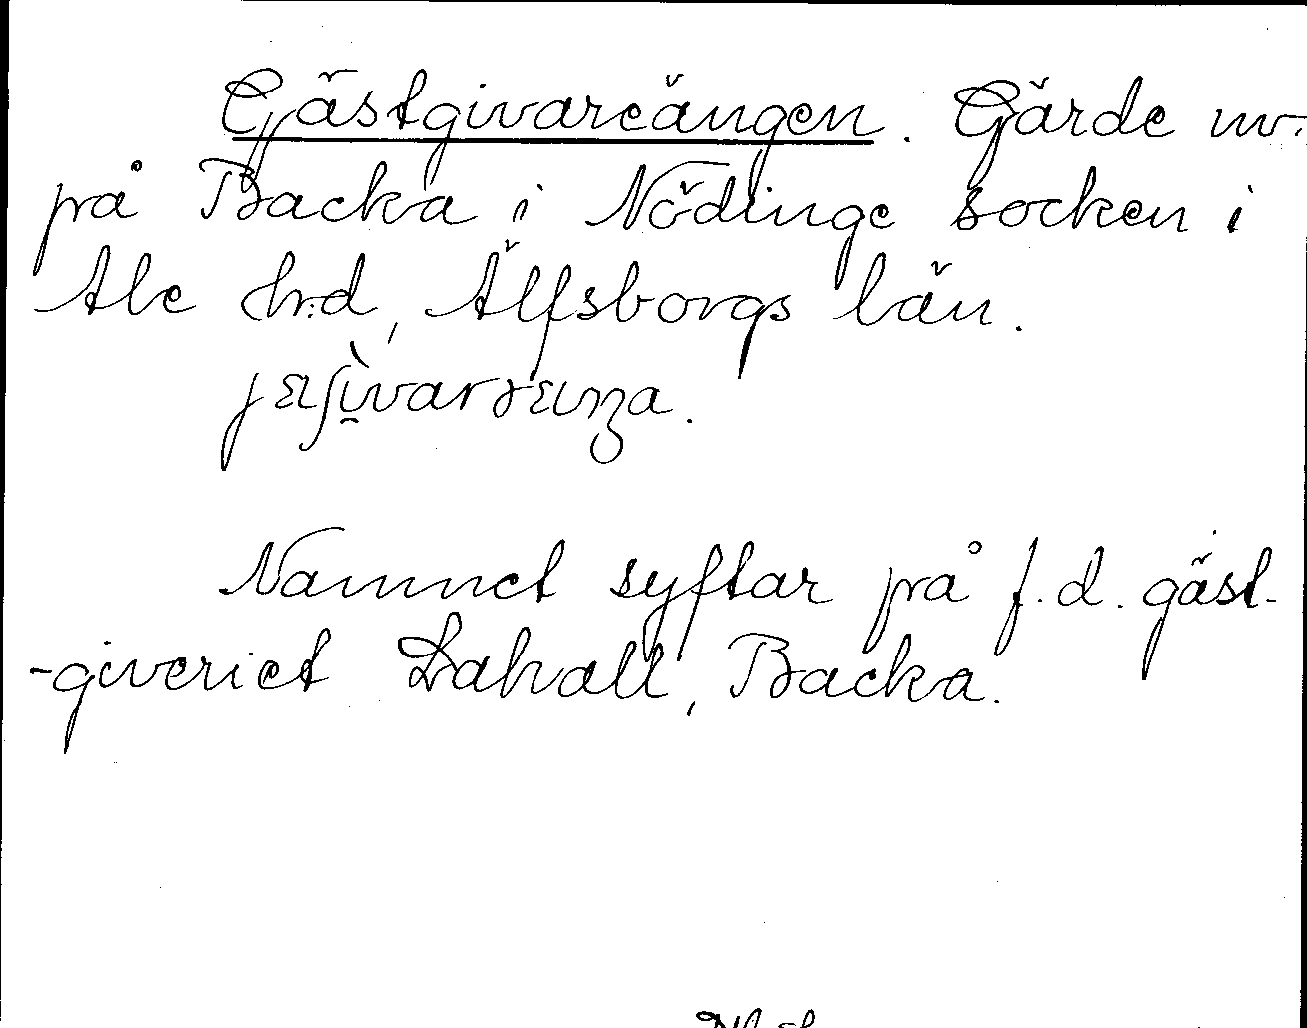 Gästgivareängen. Gärde nv.
på Backa i Nödinge socken i
Ale h:d, Älfsborgs län.
Namnet syftar på f.d. gäst-
-giveriet Lahall, Backa.